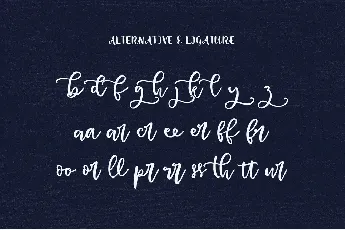 ALTERNATIVE & LIGATURE
b d f g h j k l y z
aa ar er ee er ff fr
oo or ll pr rr ss th tt ur